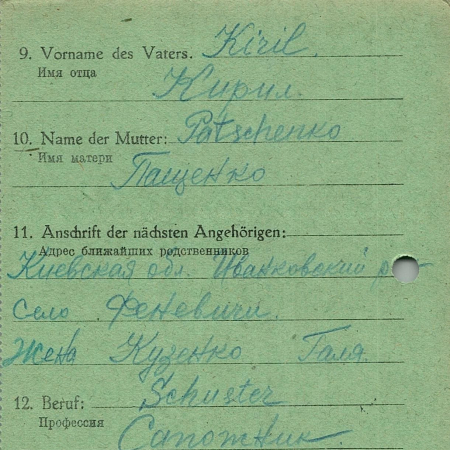 9. Vorname des Vaters. Kiril.
Имя отца
Кирил.
10. Name der Mutter: Patschenko
Имя матери
Пащенко
11. Anschrift der nächsten Angehörigen:
Адрес ближайших родственников
Киевская обл. Иванковский
Село Феневичи.
Жена Кузенко Галя.
12. Beruf: Schuster
Профессия
Сапожник.